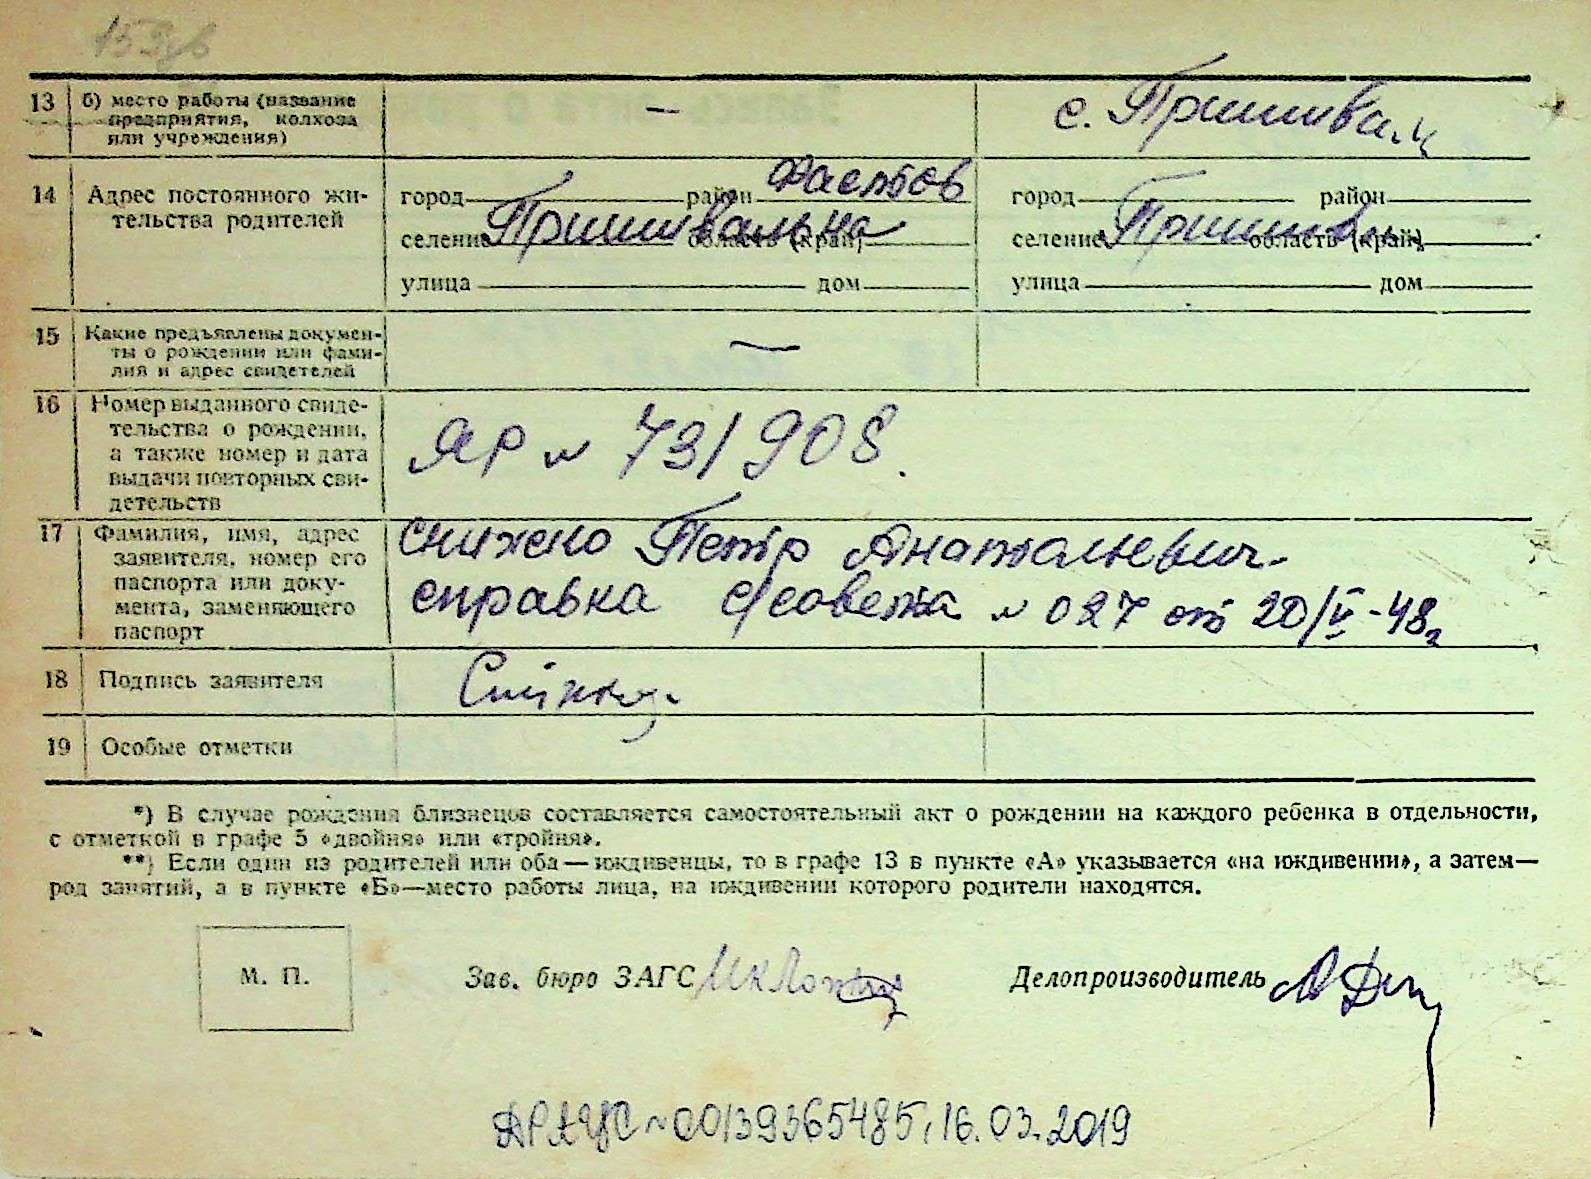 13 б) место работы (название предприятия, колхоза или учреждения) — с.
14 Адрес постоянного жительства родителей
город район Фастов город район
селение Пришивальна область (край) селение область (край)
улица дом улица дом
15 Какие предъявлены документы о рождении или фамилия и адрес свидетелей —
16 Номер выданного свидетельства о рождении, а также номер и дата выдачи повторных свидетельств
ЯР № 731908.
17 Фамилия, имя, адрес заявителя, номер его паспорта или документа, заменяющего паспорт
Петр Анатольевич-
справка с/совета № 027 от 20/V-48г
18 Подпись заявителя
19 Особые отметки
*) В случае рождения близнецов составляется самостоятельный акт о рождении на каждого ребенка в отдельности,
с отметкой в графе 5 «двойня» или «тройня».
**) Если один из родителей или оба — иждивенцы, то в графе 13 в пункте «А» указывается «на иждивении», а затем —
род занятий, а в пункте «Б» — место работы лица, на иждивении которого родители находятся.
М. П. Зав. бюро ЗАГС Делопроизводитель
ДРАЦС № 00139365485, 16.03.2019